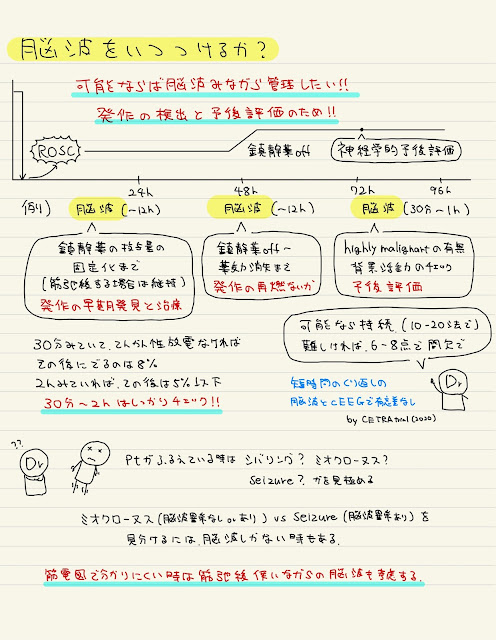 脳波をいつつけるか?
可能ならば脳波みながら管理したい!!
発作の検出と予後評価のため!!
ROSC
鎮静薬off
神経学的予後評価
24h 48h 72h 96h
例) 脳波 (~12h) 脳波 (~12h) 脳波 (30分~1h)
鎮静薬の投与量の
固定化まで
(筋弛緩する場合は継続)
発作の早期発見と治療
鎮静薬off~
薬効消失まで
発作の再燃ないか
highly malignantの有無
背景活動のチェック
予後評価
30分みていて、てんかん性放電なければ
その後にでるのは8%
2hみていれば、その後は5%以下
30分~2hはしっかりチェック!!
可能なら持続 (10-20法で)
難しければ、6-8点で間欠で
Dr
短時間のくり返しの
脳波とcEEGで有意差なし
by CERTA trial (2020)
??
Dr
Ptがふるえている時は シバリング? ミオクローヌス?
Seizure? かを見極める
ミオクローヌス (脳波異常なし or あり) vs Seizure (脳波異常あり) を
見分けるには、脳波しかない時もある.
筋電図で分かりにくい時は筋弛緩使いながらの脳波も考慮する.